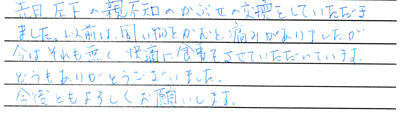 先日左下の親不知のかぶせの交換をしていただき
ました。以前は、固い物をかむと痛みがありましたが
今はそれも無く快適に食事をさせていただいています。
どうもありがとうございました。
今後ともよろしくお願いします。